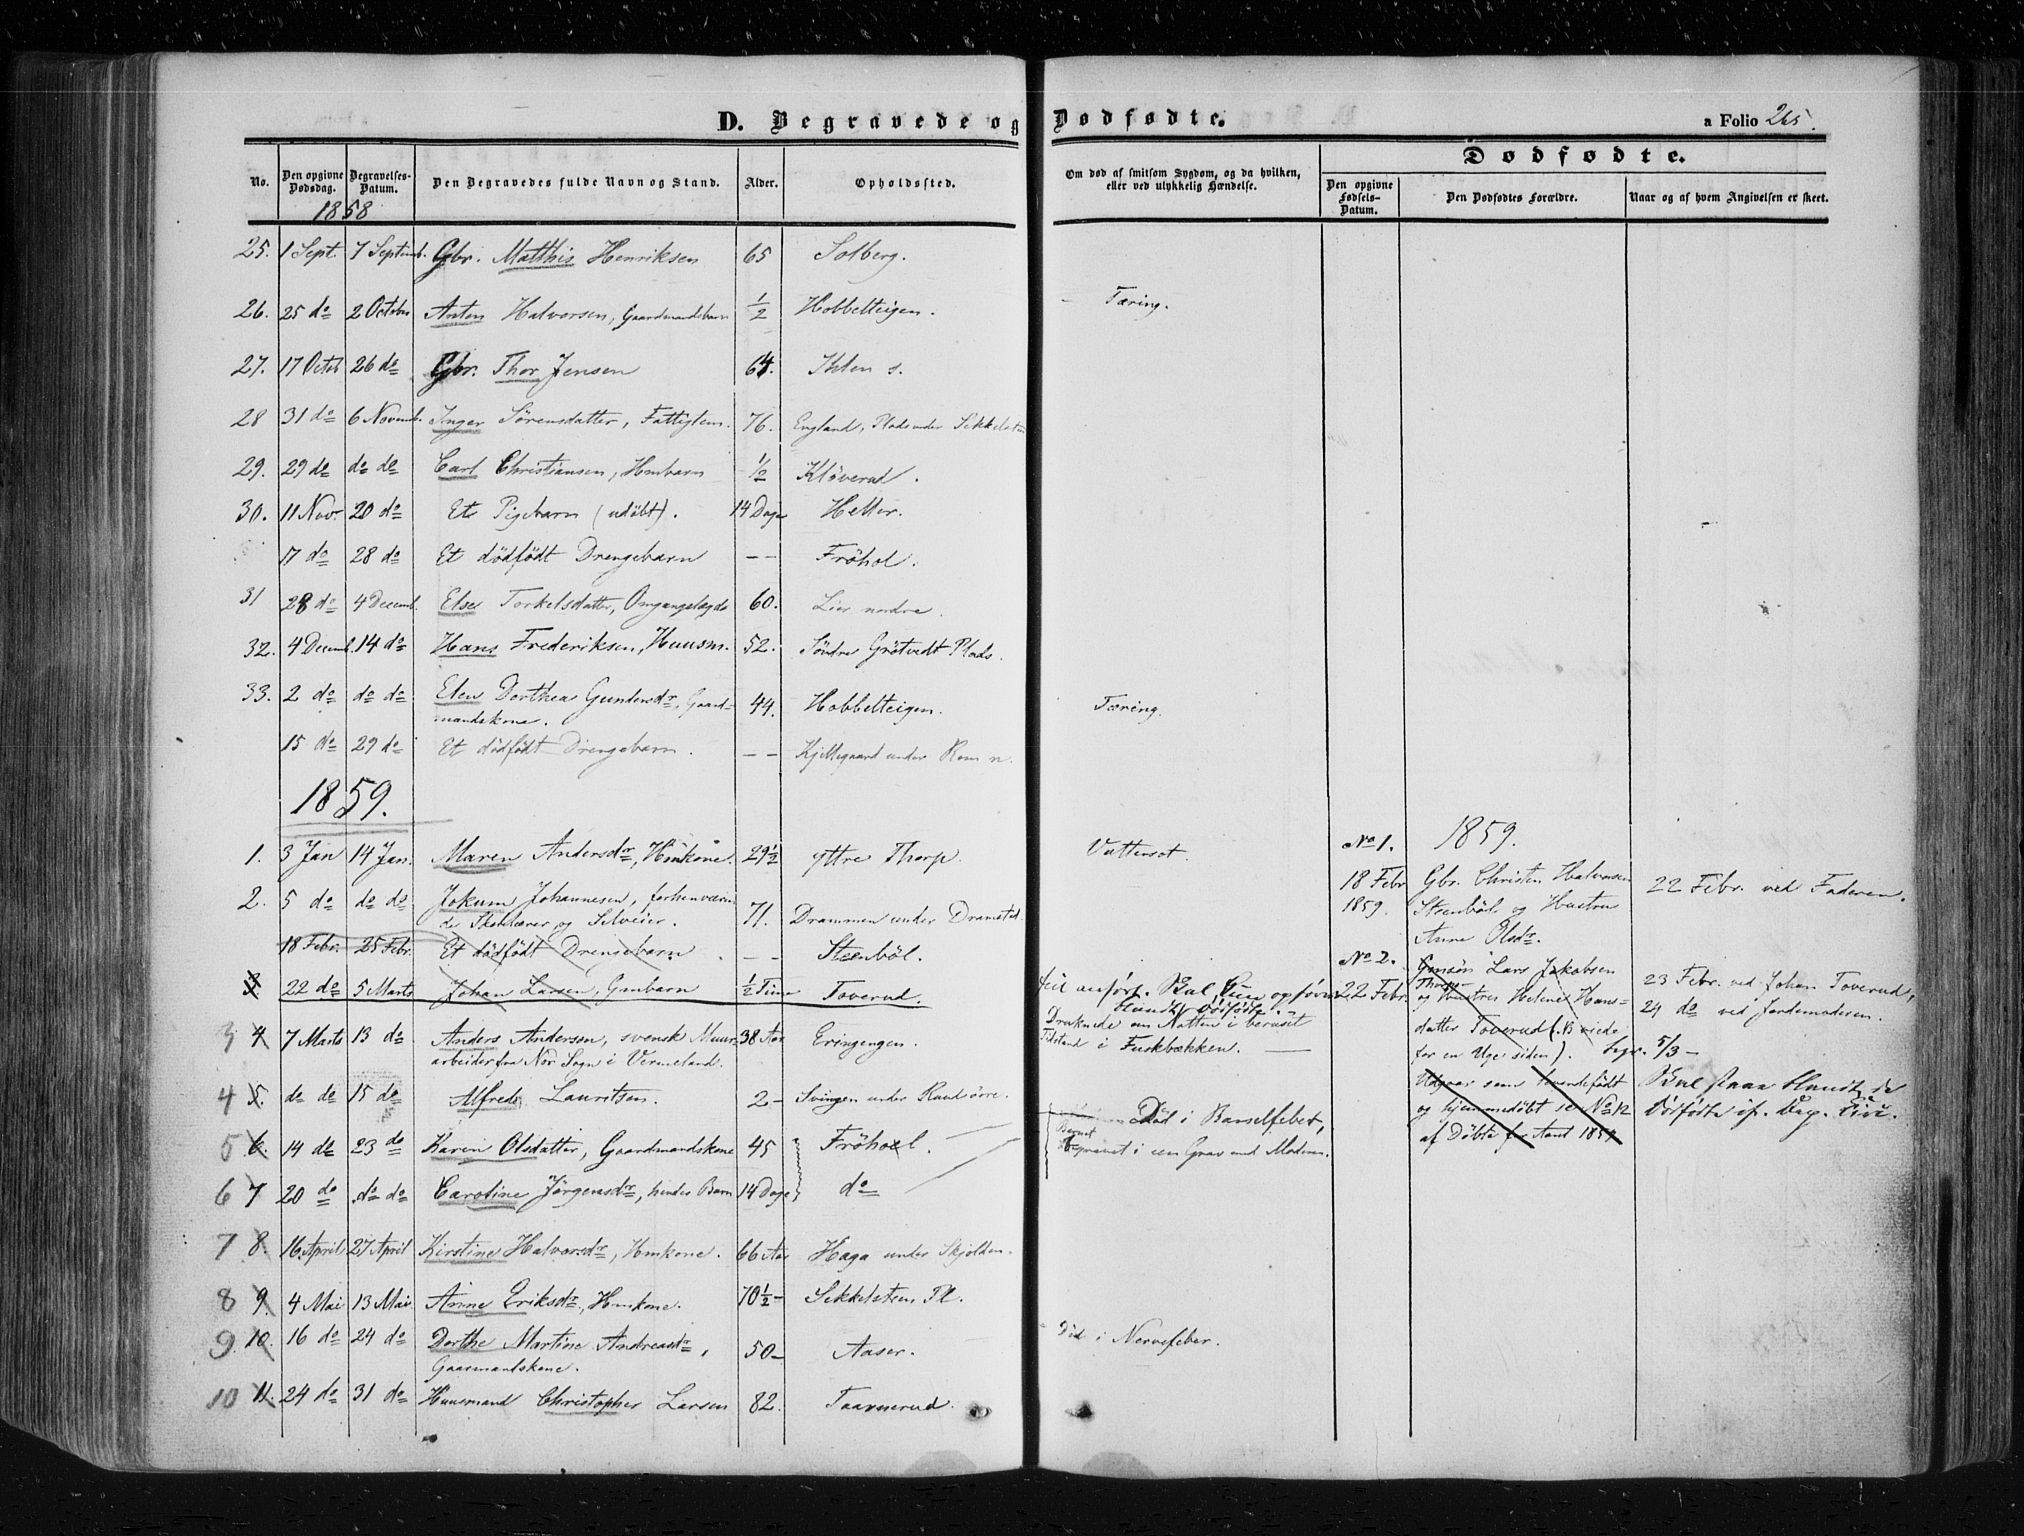 D. Begravede og Dødfødte.
a Folio 265.
No.
Den opgivne Dødsdag.
Begravelses-Datum.
Den Begravedes fulde Navn og Stand.
Alder.
Opholdssted.
Om død af smitsom Sygdom, og da hvilken,
eller ved ulykkelig Hændelse.
Dødfødte.
Den opgivne Fødsels-Datum.
Den Dødfødtes Forældre.
Naar og af hvem Angivelsen er skeet.
1858
25. 1 Sept. 7 Septemb. Gbr. Matthis Henriksen 65 Solberg.
26. 25 do 2 October Anton Halvorsen, Gaardmandsbarn 1/2 Hobbelteigen. Tæring.
27. 17 Octob 26 do Gbr. Thor Jensen 64. Ihlen s.
28 31 do 6 Novemb. Inger Sørensdatter, Fattiglem. 76. England, Plads under Sekkelsten
29. 29 do do do Carl Christiansen, Hmbarn 1/2 Kløverud.
30. 11 Nov. 20 do Et Pigebarn (udøbt). 14 Dage Heller.
17 do 28 do Et dödfödt Drengebarn - - Fröhol.
31 28 do 4 Decemb. Else Torkelsdatter, Omgangslægd 60. Lier nordre.
32. 4 Decemb. 14 do Hans Frederiksen, Huusm. 52. Søndre Grötvedt Plads.
33. 2 do do do Elen Dorthea Gundersdr, Gaard-
mandskone. 44. Hobbelteigen. Tæring.
15 do 29 do Et dödfödt Drengebarn. - - Kjillegaard under Rom n.
1859.
1. 3 Jan 14 Jan. Maren Andersdr, Hmkone. 29 1/2 ytre Thorp. Vattersot.
2. 5 do do do Jokum Johannesen, forhenværen
de Skolelærer og Selveier. 71. Drammen under Dramstad
18 Febr. 25 Febr. Et dödfödt Drengebarn. - - Steenböl.
3 22 do 5 Marts Johan Larsen, Gmbarn 1/2 Time Toverud.
feil anført. Skal
3 4 7 Marts 13 do Anders Andersen, svensk Muur-
arbeider fra Nor Sogn i Vermeland. 38 Aar Eringengen.
Druknede om Natten i beruset
Tilstand i Fuskbækken.
4 5. do do 15 do Alfred Lauritsen. 2 - Svingen under Raudøre.
5 6. 14 do 23 do Karen Olsdatter, Gaardmandskone 45 Fröhoel. Död i Barselfeber,
6 7 20 do do do Caroline Jørgensdr, hendes Barn 14 Dage do
Barnet
begravet i een Grav med Moderen.
7 8. 16 April 27 April Kirstine Halvorsdr, Hmkone. 66 Aar Haga under Skjolden.
8 9. 4 Mai 13 Mai Anne Eriksdr, Hmkone. 70 1/2 - Sekkelsten Pl.
9 10. 16 do 24 do Dorthe Martine Andreasdr,
Gaarmandskone. 50 - Aaser. Död i Nervefeber.
10 11. 24 do 31 do Huusmand Christopher Larsen 82. Taarnerud.
1859.
No 1.
18 Febr
1859.
Gbr. Christen Halvorsen
Steenböl og Hustru
Anne Olsdr.
22 Febr. ved Faderen.
No 2.
22 Febr.
Lars Jakobsen
og Hustru Helene Hans-
datter Toverud (B viede
for en Uge siden). begr. 5/3 -
23 Febr. ved Johan Toverud,
24 do ved Jordemoderen.
Udgaar som levendefödt
og hjemmedøbt se No 12
af Döbte for Aaret 1859
Skal staae blandt de
Dödfødte